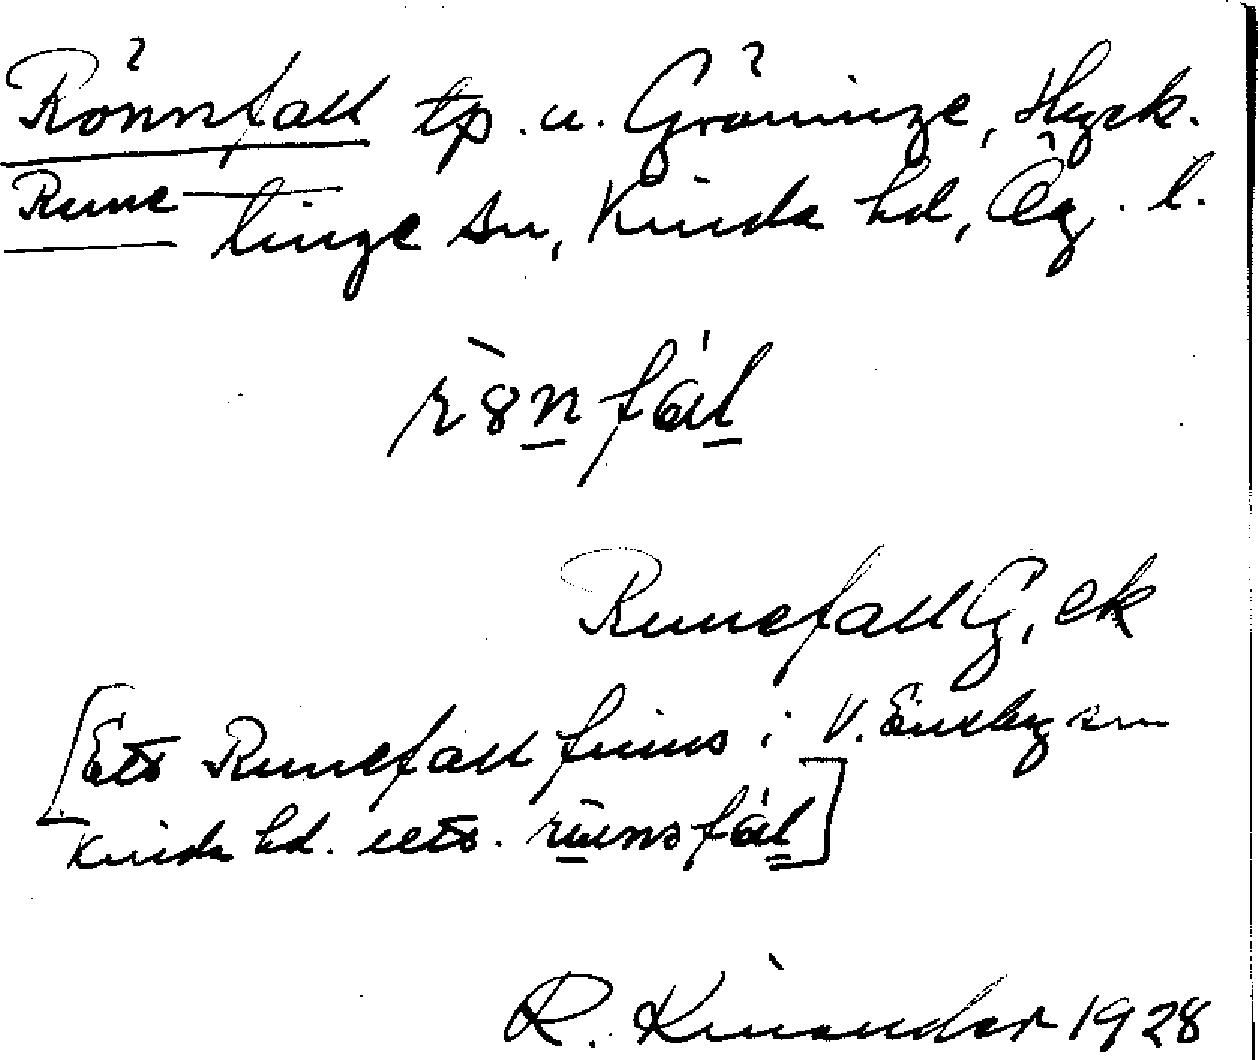 Rönnfall tp. u. Gröninge, Hyck-
Rune— linge sn, Kinda hd, Ög. l.
Runefall G, ek
[Ett Runefall finns i V. Eneby sn
Kinda hd. utt.
R. Kinander 1928